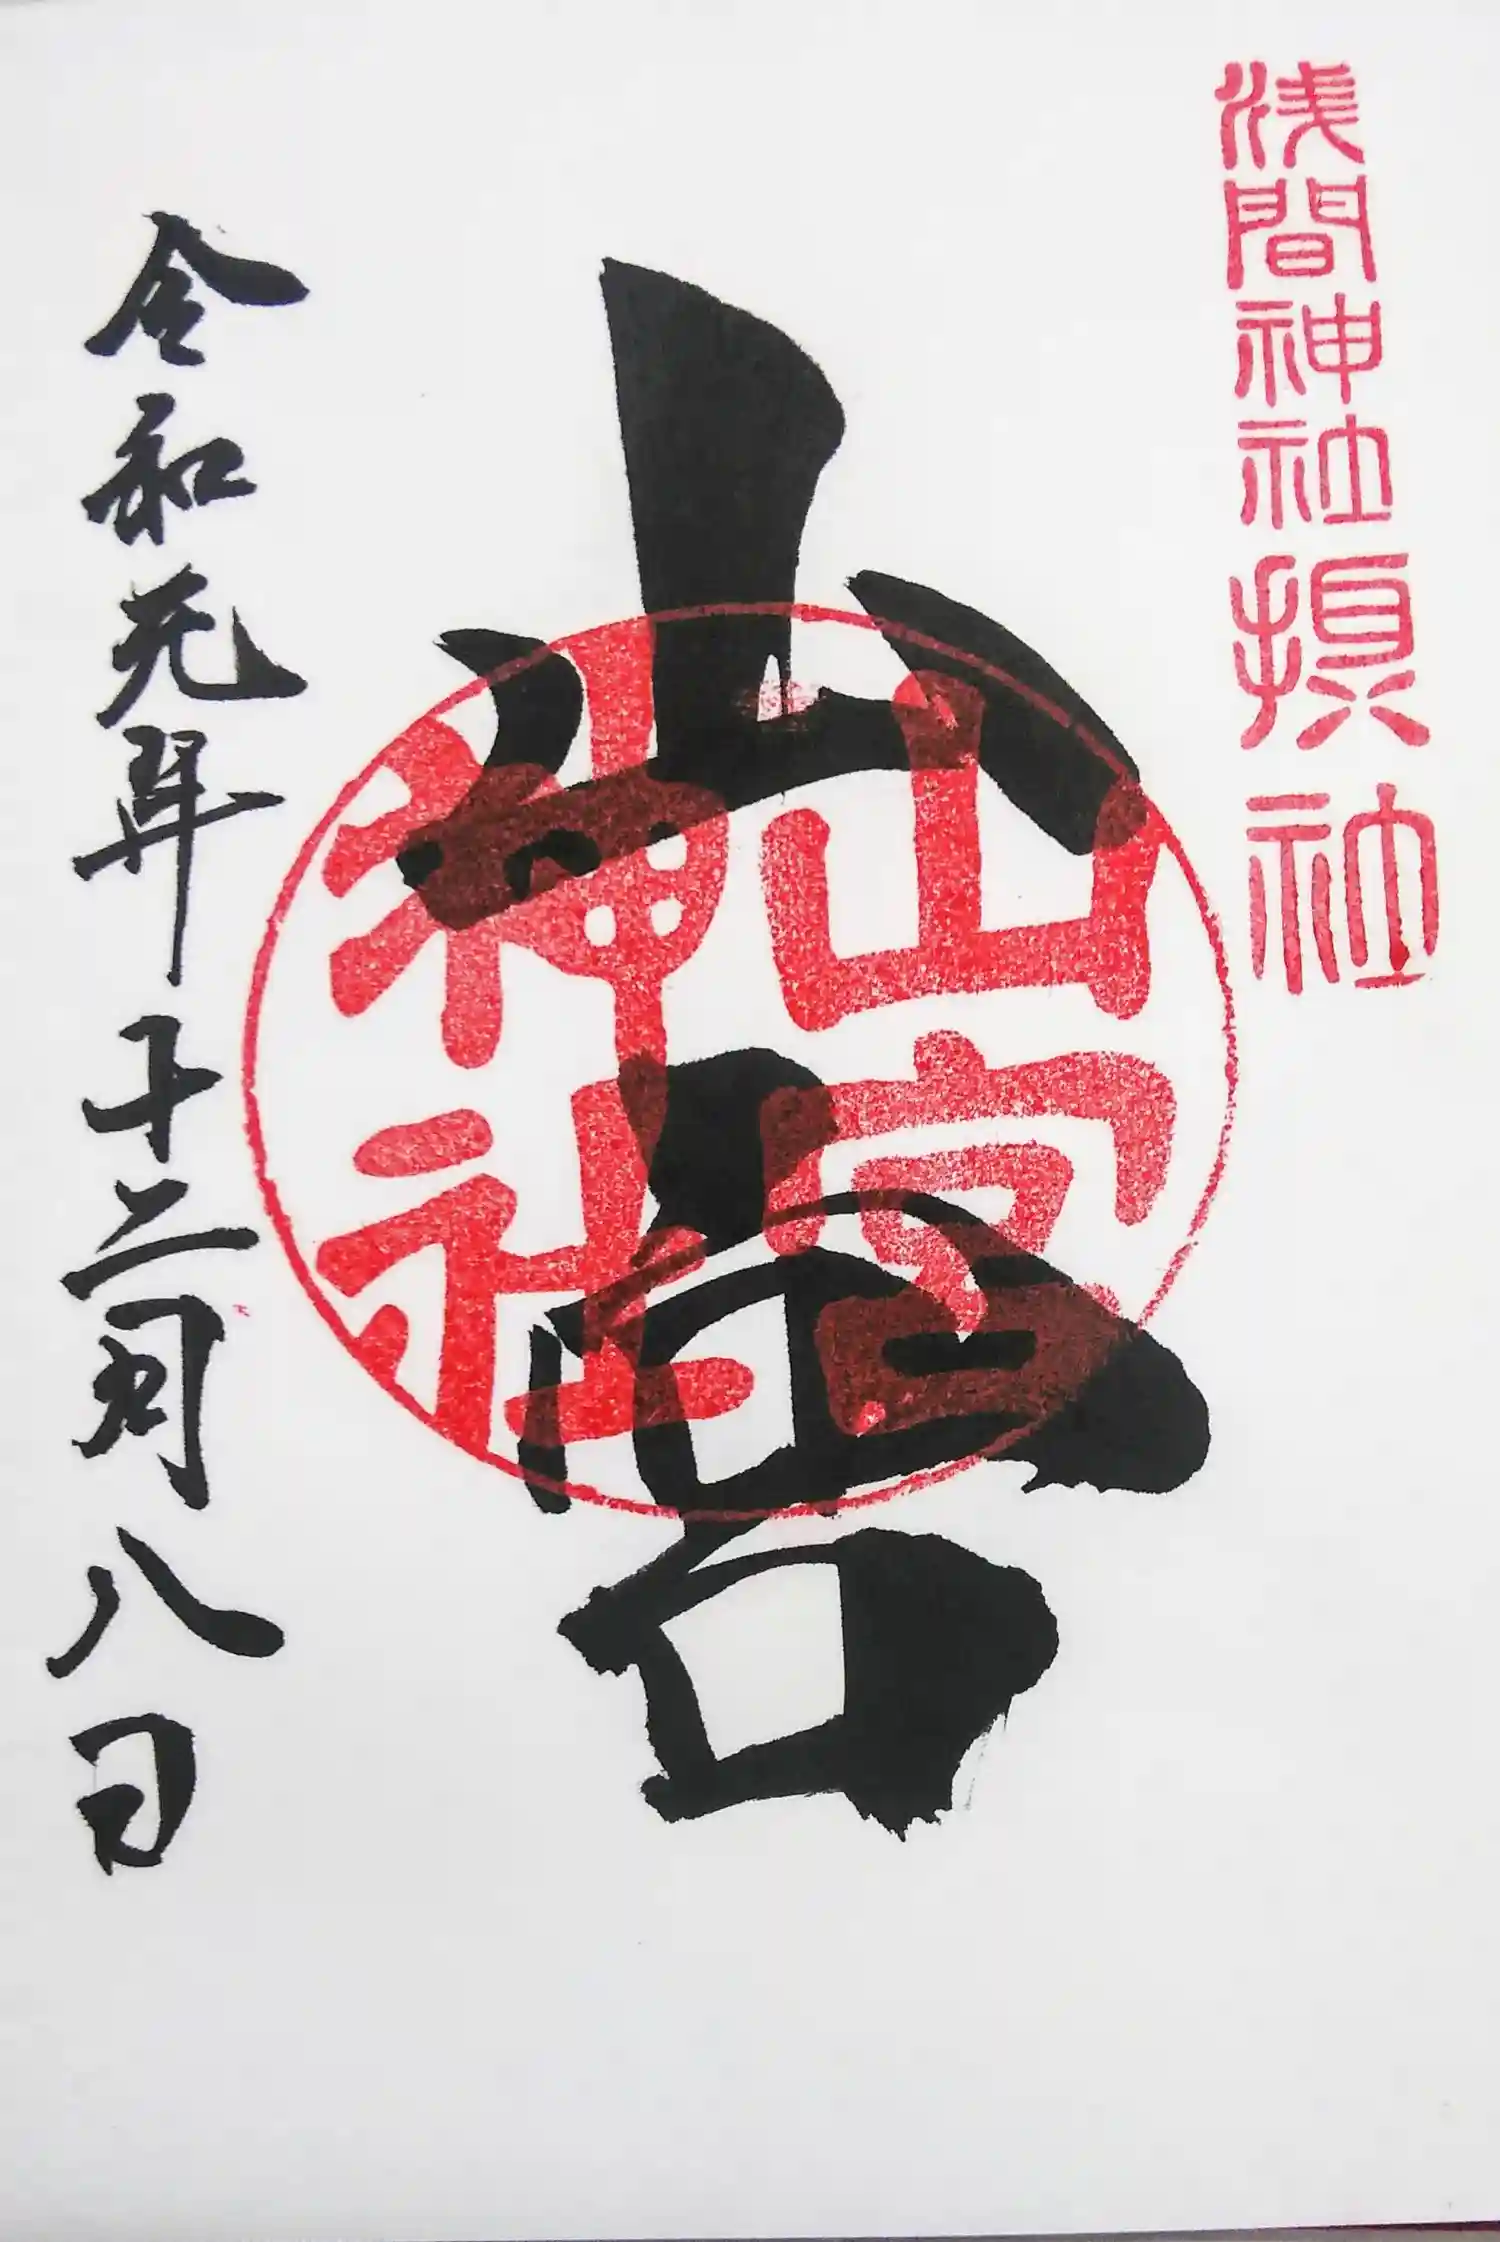 浅間神社摂社
山宮
山宮
神社
令和元年十二月八日